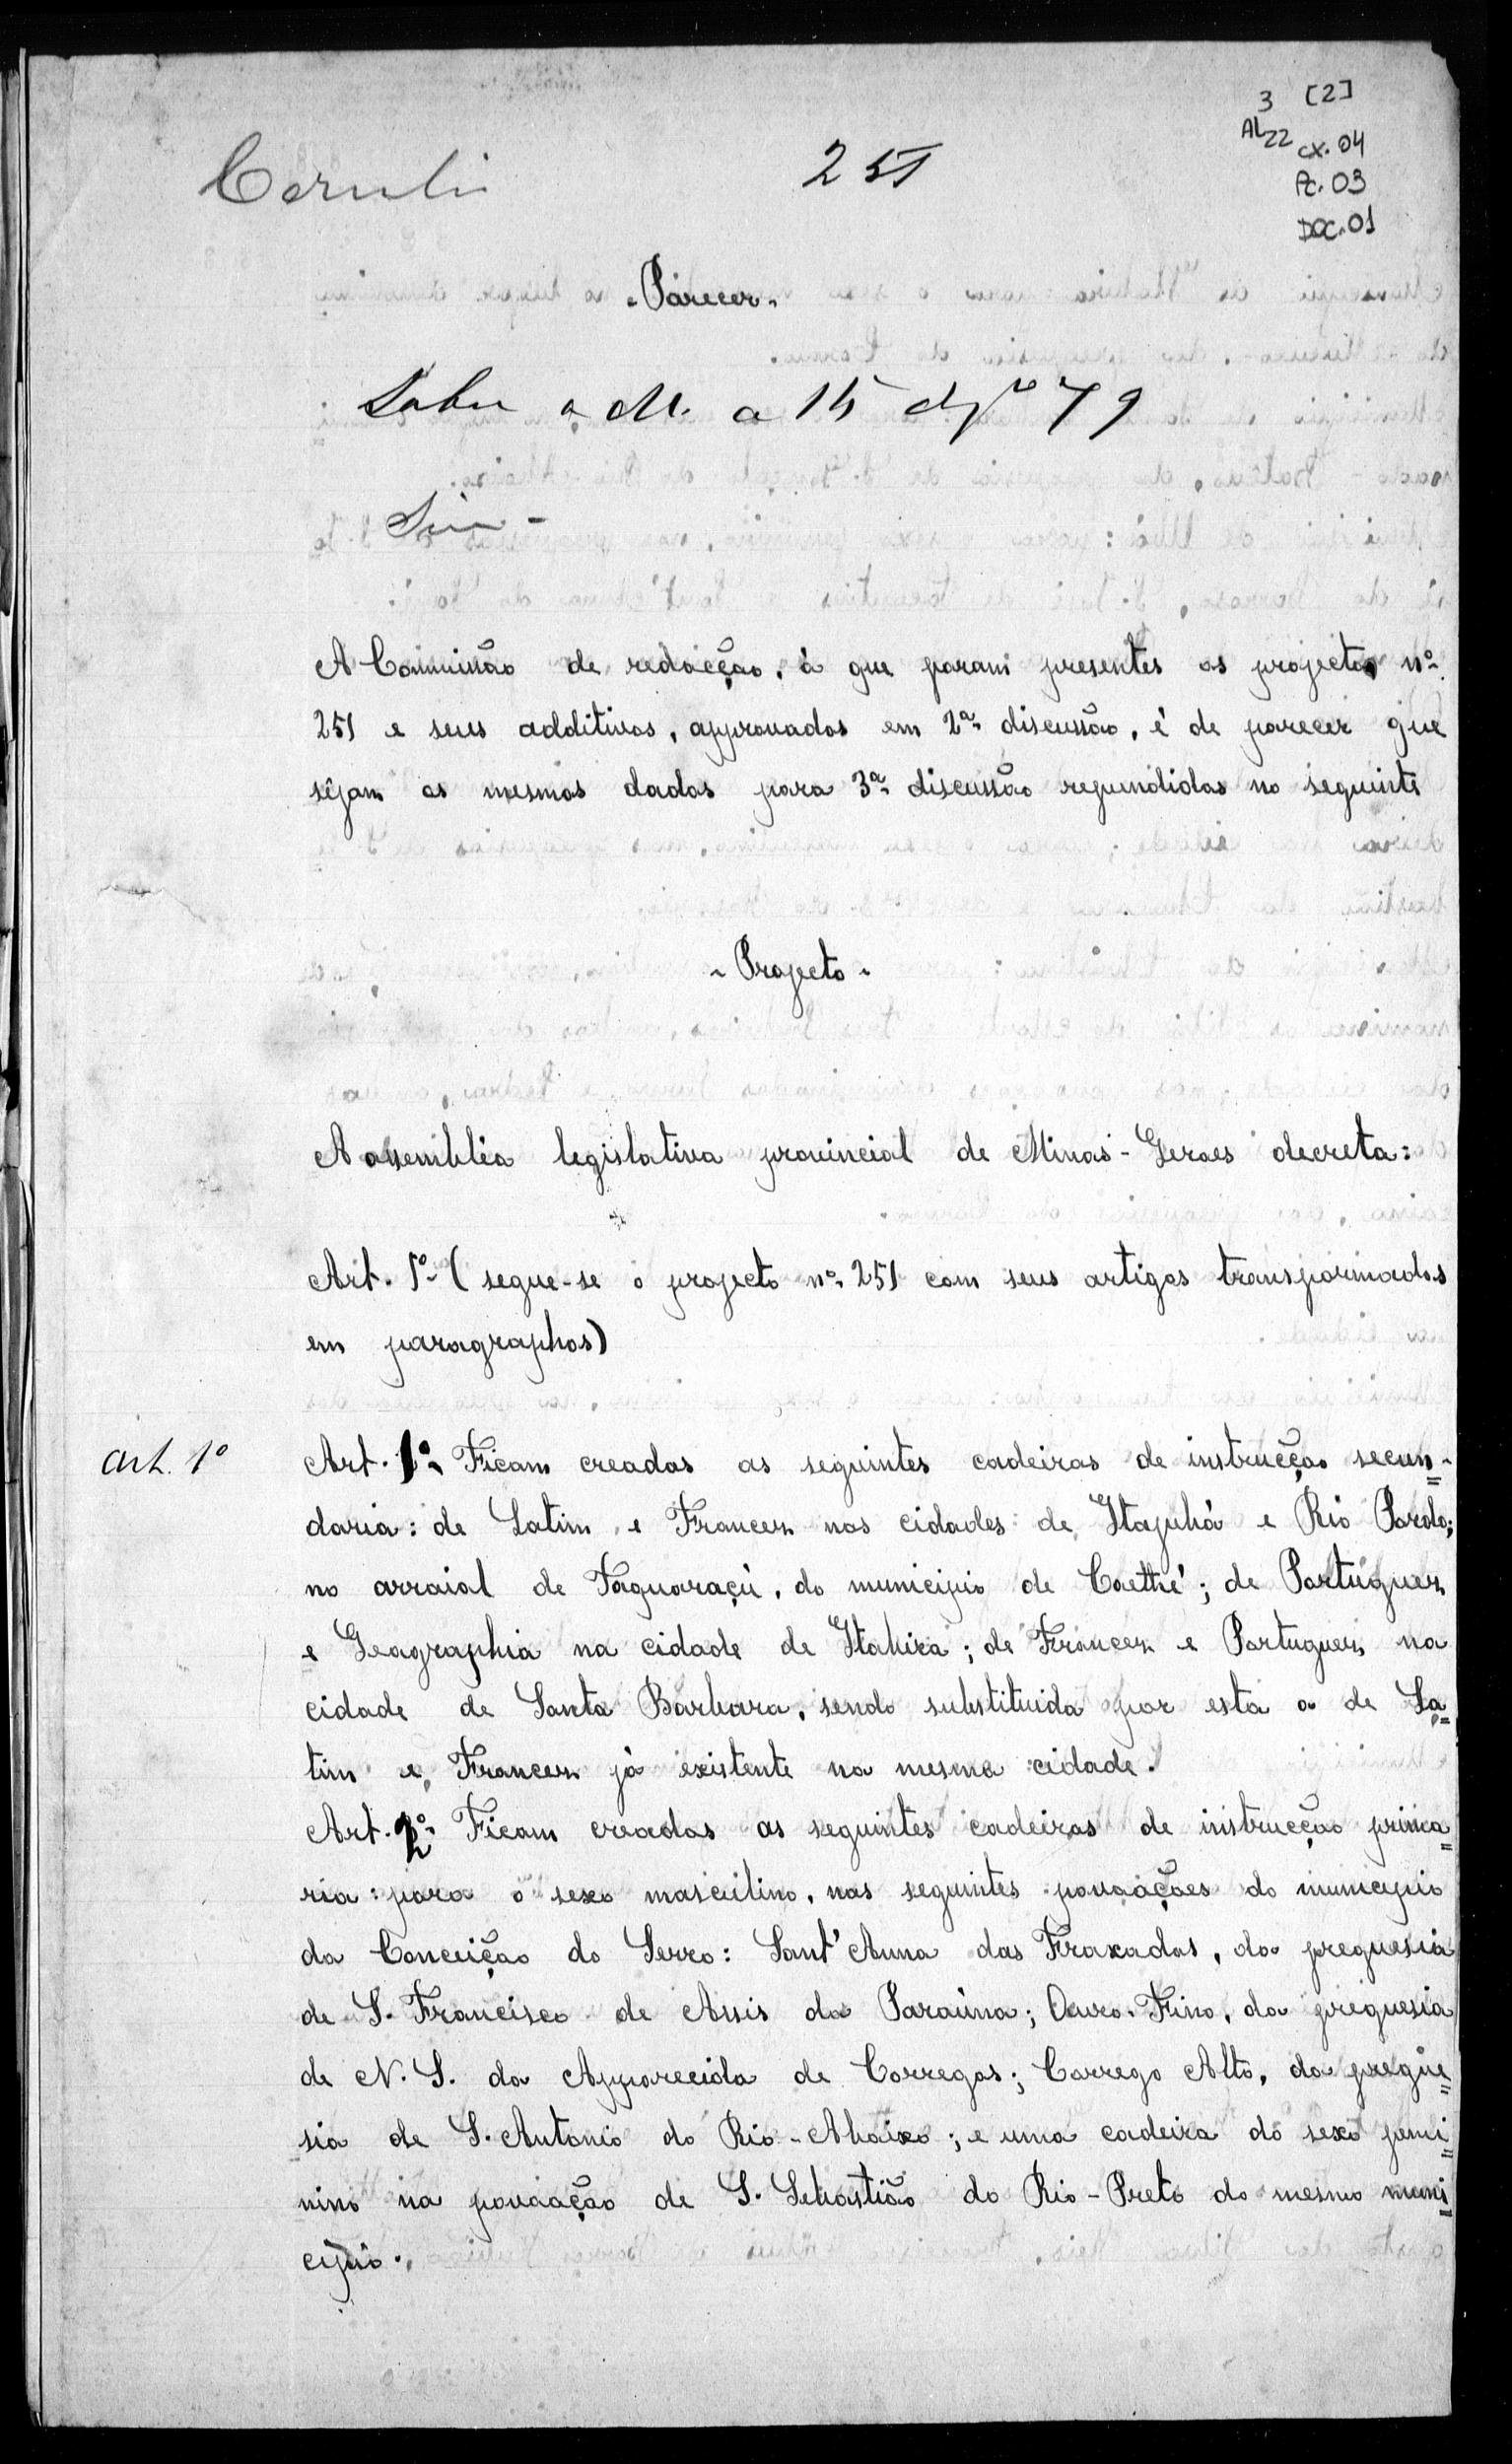 3 [2]
AL 22 cx. 04
Pc. 03
DOC. 01
251
Parecer
a 15
79
A Commissão de redacção, á que foram presentes os projectos nº
251 e seus additivos, approvados em 2ª discussão, é de parecer que
sêjam os mesmos dados para 3ª discussão refundidos no seguinte
Projecto
A assembléa legislativa provincial de Minas-Geraes decreta:
Art. 1º (segue-se o projecto nº 251 com seus artigos transformados
em paragraphos)
Art. 1º
Art. 1º Ficam creadas as seguintes cadeiras de instrucção secun=
daria: de Latim e Francez nas cidades de Itajubá e Rio Pardo;
no arraial de Taquaraçú, do municipio de Caethé; de Portuguez
e Geographia na cidade de Itabira; de Francez e Portuguez na
cidade de Santa Barbara, sendo substituida por esta a de La=
tim e Francez já existente na mesma cidade.
Art. 2º Ficam creadas as seguintes cadeiras de instrucção prima=
ria: para o sexo masculino, nas seguintes povoações do municipio
da Conceição do Serro: Sant'Anna das Fraxadas, da freguesia
de S. Francisco de Assis da Paraúna; Ouro-Fino, da freguesia
de N. S. da Apparecida de Corregos; Corrego Alto, da fregue=
sia de S. Antonio do Rio-Abaixo; e uma cadeira do sexo femi=
nino na povoação de S. Sebastião do Rio-Preto do mesmo muni=
cipio.